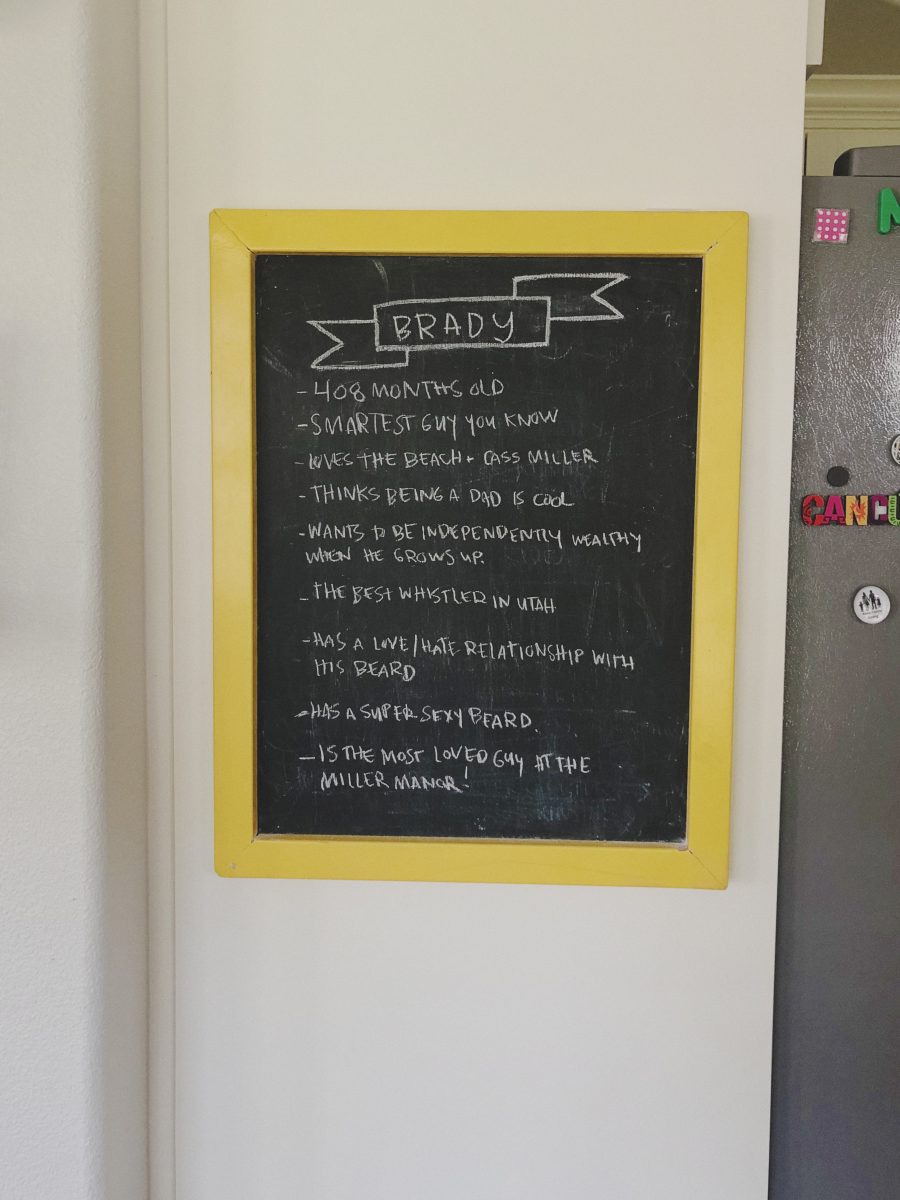 BRADY
- 408 MONTHS OLD
- SMARTEST GUY YOU KNOW
- LOVES THE BEACH + CASS MILLER
- THINKS BEING A DAD IS COOL
- WANTS TO BE INDEPENDENTLY WEALTHY
WHEN HE GROWS UP.
- THE BEST WHISTLER IN UTAH
- HAS A LOVE/HATE RELATIONSHIP WITH
HIS BEARD
- HAS A SUPER SEXY BEARD.
- IS THE MOST LOVED GUY AT THE
MILLER MANOR!
CANCU